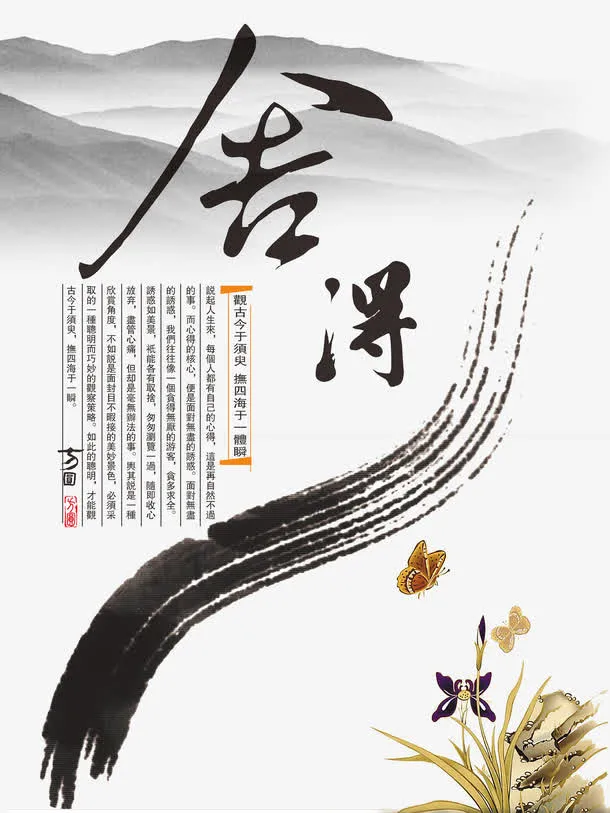 舍
得
觀古今于須臾 撫四海于一體瞬
説起人生來，每個人都有自己的心得，這是再自然不過
的事。而心得的核心，便是面對無盡的誘惑。面對無盡
的誘惑，我們往往像一個貪得無厭的游客，貪多求全。
誘惑如美景，衹能各有取捨，匆匆瀏覽一過，隨即收心
放弃，盡管心痛，但却是毫無辦法的事。輿其說是一種
欣賞角度，不如説是面封目不暇接的美妙景色，必須采
取的一種聰明而巧妙的觀察策略。如此的聰明，才能觀
古今于須臾，撫四海于一瞬。
方圓
方圓